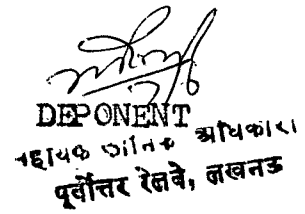 DEPONENT
सहायक कार्मिक अधिकारी
पूर्वोत्तर रेलवे, लखनऊ